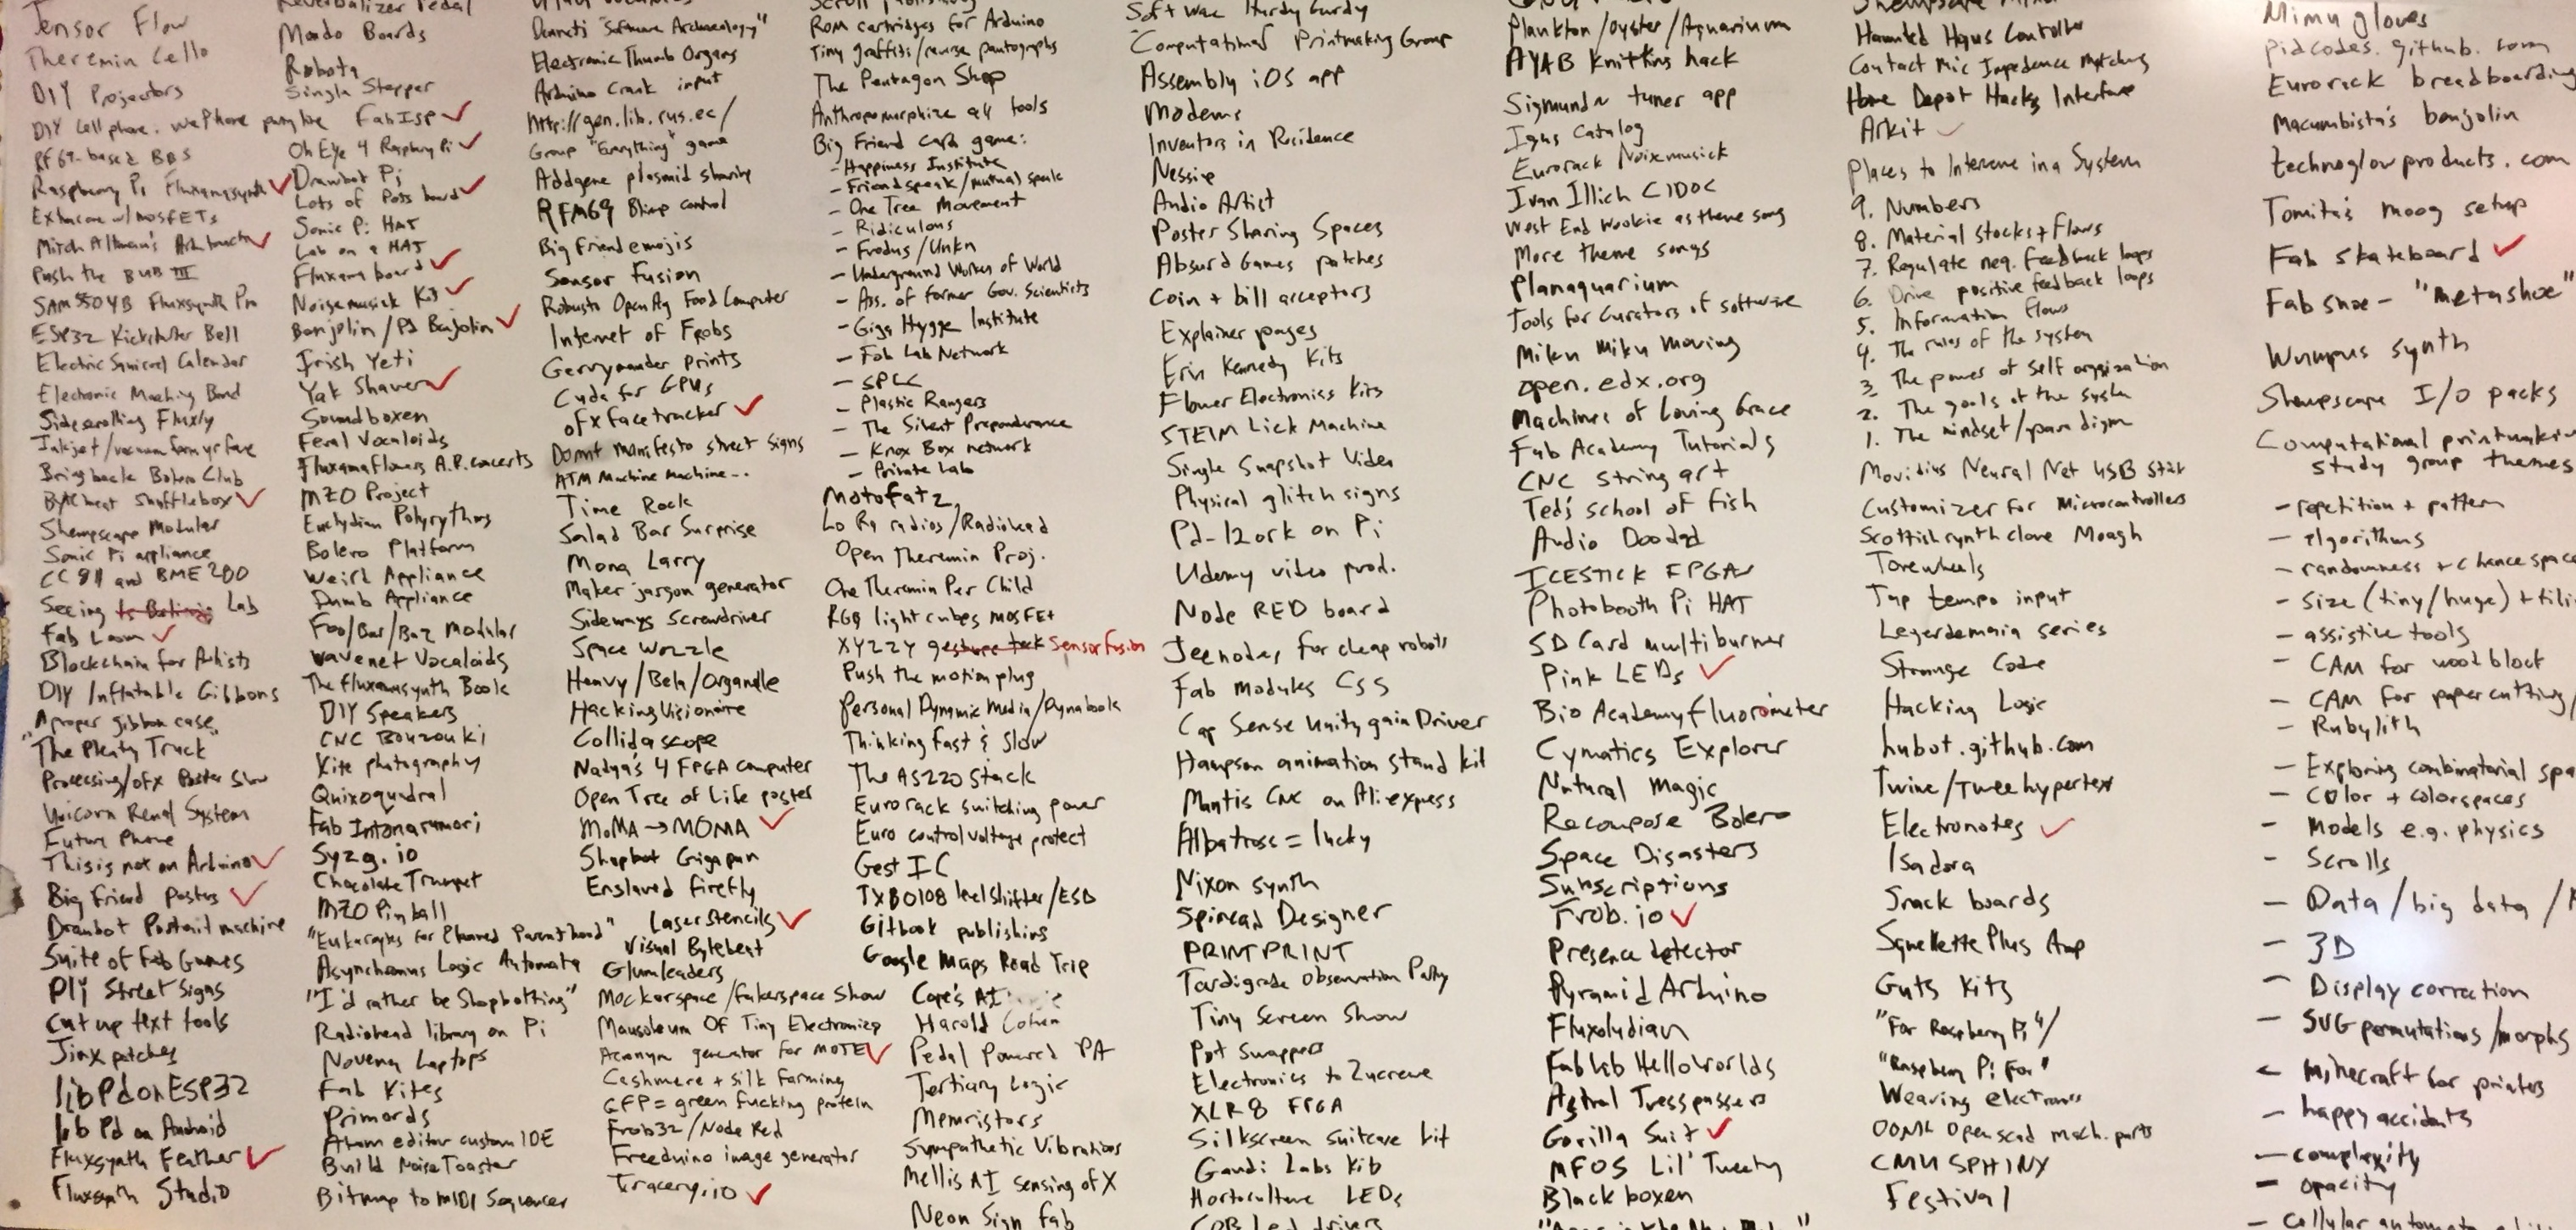 Tensor Flow
Theremin Cello
DIY Projectors
DIY Cell phone. wePhone party line
RF69-based BBS
Raspberry Pi Fluxamasynth
w/ MOSFETs
Mitch Altman's
Push the BUB III
SAM Fluxsynth Pro
ESP32 Kickstarter Bell
Electric Squirrel Calendar
Electronic Band
Sidescrolling Fluxly
Inkjet/vacuum
Bring back Bolero Club
Bytebeat Shufflebox
Shempscape Modular
Sonic Pi appliance
and
Seeing Lab
Fab Loom
Blockchain for Artists
DIY Inflatable Gibbons
"A proper gibbon case"
"The Plenty Truck
Processing/ofx Poster Show
Unicorn Renal System
Future Phone
This is not an Arduino
Big Friend posters
Drawbot Portrait machine
Suite of Fab Games
DIY Street Signs
Cut up text tools
Jinx patches
libPd on ESP32
lib Pd on Android
Fluxsynth Feather
Fluxsynth Studio
Reverbalizer Pedal
Mondo Boards
Robota
Single Stepper
FabIsp
Oh Eye 4 Raspberry Pi
Drawbot Pi
Lots of Pots board
Sonic Pi HAT
Lab on a HAT
Fluxama board
Noisemusick Kit
Benjolin/Pd Benjolin
Irish Yeti
Yak Shaver
Soundboxen
Feral Vocaloids
Fluxamaflowers A.R. concerts
MZO Project
Euclydian Polyrythms
Bolero Platform
Weird Appliance
Dumb Appliance
Foo/Bar/Baz Modular
Wavenet Vocaloids
The Fluxamasynth Book
DIY Speakers
CNC Bouzouki
Kite photography
Quixoquadral
Fab Intonarumori
Syzg.io
Chocolate Trumpet
MZO Pinball
"Eukaryotes for Planned Parenthood"
Asynchronus Logic Automata
"I'd rather be Shopbotting"
Radiohead library on Pi
Novena Laptops
Fab Kites
Primords
Atom editor custom IDE
Build NoiseToaster
Bitmap to MIDI Sequencer
Dennett "Software Archaeology"
Electronic Thumb Organs
Arduino Crank input
http://gen.lib.rus.ec/
Group "Everything" game
Addgene plasmid sharing
RFM69 Blimp control
Big Friend emojis
Sensor Fusion
Robusto OpenAg Food Computer
Internet of Frobs
Gerrymander prints
Cuda for GPUs
ofx facetracker
manifesto street signs
ATM Machine Machine...
Time Rock
Salad Bar Surprise
Mona Larry
Maker jargon generator
Sideways Screwdriver
Space Wozzle
Heavy/Bela/Organelle
Hacking Visionaire
Collidascope
Nadya's 4 FPGA computer
Open Tree of Life poster
MoMA → MOMA
Shopbot Gigapan
Enslaved firefly
Laser stencils
Visual Bytebeat
Glumleaders
Mockerspace/fakerspace Show
Mausoleum Of Tiny Electronics
Acronym generator for MOTE
Cashmere + silk farming
GFP = green fucking protein
Frob32/Node Red
Freeduino image generator
Tracery.io
ROM cartridges for Arduino
Tiny graffiti/reverse pantographs
The Pentagon Shop
Anthropomorphize all tools
Big Friend Card game:
- Happiness Institute
- Friendspeak/mutual speak
- One Tree Movement
- Ridiculous
- Exodus/Unkn
- Underground Workers of World
- Ass. of former Gov. Scientists
- Giga Hygge Institute
- Fab Lab Network
- SPLC
- Plastic Rangers
- The Silent Preponderance
- Knox Box network
- Private Lab
Motofatz
Lo Ra radios/Radiohead
Open Theremin Proj.
One Theremin Per Child
RGB light cubes MOSFET
XYZZY gesture tech Sensor fusion
Push the motion plug
Personal Dynamic Media/Dynabook
Thinking fast & slow
The AS220 Stack
Eurorack switching power
Euro control voltage protect
Gest IC
TXB0108 level shifter/ESD
Gitbook publishing
Google Maps Road Trip
Cope's AI
Harold Cohen
Pedal Powered PA
Tertiary Logic
Memristors
Sympathetic Vibrations
Mellis AI sensing of X
Neon Sign fab
Software Hurdy Gurdy
Computational Printmaking Group
Assembly iOS app
Modems
Inventors in Residence
Nessie
Audio Artist
Poster Sharing Spaces
Absurd Games patches
Coin + bill acceptors
Explainer pages
Erin Kennedy Kits
Flower Electronics Kits
STEIM Lick Machine
Single Snapshot Video
Physical glitch signs
Pd-l2ork on Pi
Udemy video prod.
Node RED board
Jeenodes for cheap robots
Fab modules CSS
Cap Sense Unity gain Driver
Hampson animation stand kit
Mantis CNC on Aliexpress
Albatross = lucky
Nixon synth
Spiread Designer
PRINTPRINT
Tardigrade Observation Party
Tiny Screen Show
Pot Swappers
Electronics to 2ucreve
XLR8 FPGA
Silkscreen suitcase kit
Gaudi Labs Kib
Horticulture LEDs
COB Led drivers
Plankton/Oyster/Aquarium
AYAB Knitting hack
Sigmund~ tuner app
Igus Catalog
Eurorack Noisemusick
Ivan Illich CIDOC
West End Wookie as theme song
More theme songs
Planaquarium
Tools for Curators of software
Miku Miku Moving
open.edx.org
Machines of Loving Grace
Fab Academy Tutorials
CNC string art
Ted's school of fish
Audio Doodad
ICESTICK FPGAs
Photobooth Pi HAT
SD Card multiburner
Pink LEDs
Bio Academy fluorometer
Cymatics Explorer
Natural Magic
Recompose Bolero
Space Disasters
Subscriptions
Frob.io
Presence detector
Pyramid Arduino
Fluxolydian
Fablab HelloWorlds
Astral Tresspassers
Gorilla Suit
MFOS Lil' Tweety
Black boxen
Haunted Haus Controller
Contact Mic Impedence Matching
Home Depot Hacks Interface
Arkit
Places to Intervene in a System
9. Numbers
8. Material Stocks + Flows
7. Regulate neg. feedback loops
6. Drive positive feedback loops
5. Information flows
4. The rules of the system
3. The power of self orgsization
2. The goals of the system
1. The mindset/paradigm
Movidius Neural Net USB Stick
Customizer for Microcontrollers
Scottish synth clone Moagh
Tonewheels
Tap tempo input
Legerdemain series
Strange Code
Hacking Logic
hubot.github.com
Twine/Twee hypertext
Electronotes
Isadora
Snack boards
Squelette Plus Amp
Guts Kits
"For Raspberry Pi"/
"Raspberry Pi For"
Weaving electrons
OOML Openscad mach. parts
CMU SPHINX
Festival
Mimu gloves
pidcodes.github.com
Eurorack breadboarding
Macumbista's benjolin
technoglowproducts.com
Tomita's moog setup
Fab skateboard
Fab shoe - "metashoe"
Wumpus synth
Shempscape I/O packs
Computational printmakin
study group themes
- repetition + pattern
- algorithms
- randomness + chance space
- Size (tiny/huge) + tili
- assistive tools
- CAM for wood block
- CAM for paper cutting/
- Rubylith
- Exploring combinatorial spa
- Color + colorspaces
- Models e.g. physics
- Scrolls
- Data/big data/
- 3D
- Display correction
- SVG permutations/morphs
- Minecraft for printers
- happy accidents
- complexity
- opacity
- cellular automata